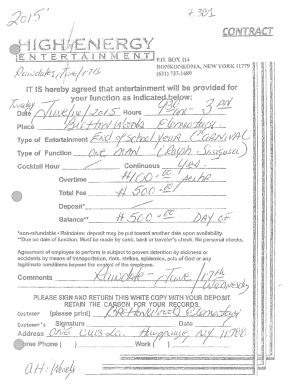 2015
7.301
CONTRACT
HIGH ENERGY
ENTERTAINMENT
P.O. BOX 114
RONKONKOMA, NEW YORK 11779
(631) 737-1689
Raindate, June/17th
IT IS hereby agreed that entertainment will be provided for
your function as indicated below:
Tuesday
Date June/16/2015 Hours 9:30 AM - 3 PM
Place Bretton Woods Elementary
Type of Entertainment End of School Year CARNIVAL
Type of Function ONE MAN (Ralph
Cocktail Hour Continuous Yes
Overtime $100.00
Total Fee $500.00
Deposit*
Balance** $500.00 DAY OF
*non-refundable - Raindates: deposit may be put toward another date upon availability.
**Due on date of function. Must be made by cash, bank or traveler's check. No personal checks.
Agreement of employee to perform is subject to proven detention by sickness or
accidents by means of transportation, riots, strikes, epidemics, acts of God or any
legitimate conditions beyond the control of the employee.
Comments Raindate - June / 17th
Wednesday
PLEASE SIGN AND RETURN THIS WHITE COPY WITH YOUR DEPOSIT.
RETAIN THE CARBON FOR YOUR RECORDS.
Customer (please print) Bretton Woods Elementary
Customer's Signature Date
Address ONE Hauppauge, NY 11788
Home Phone ( ) Work ( )
Att: Wendy